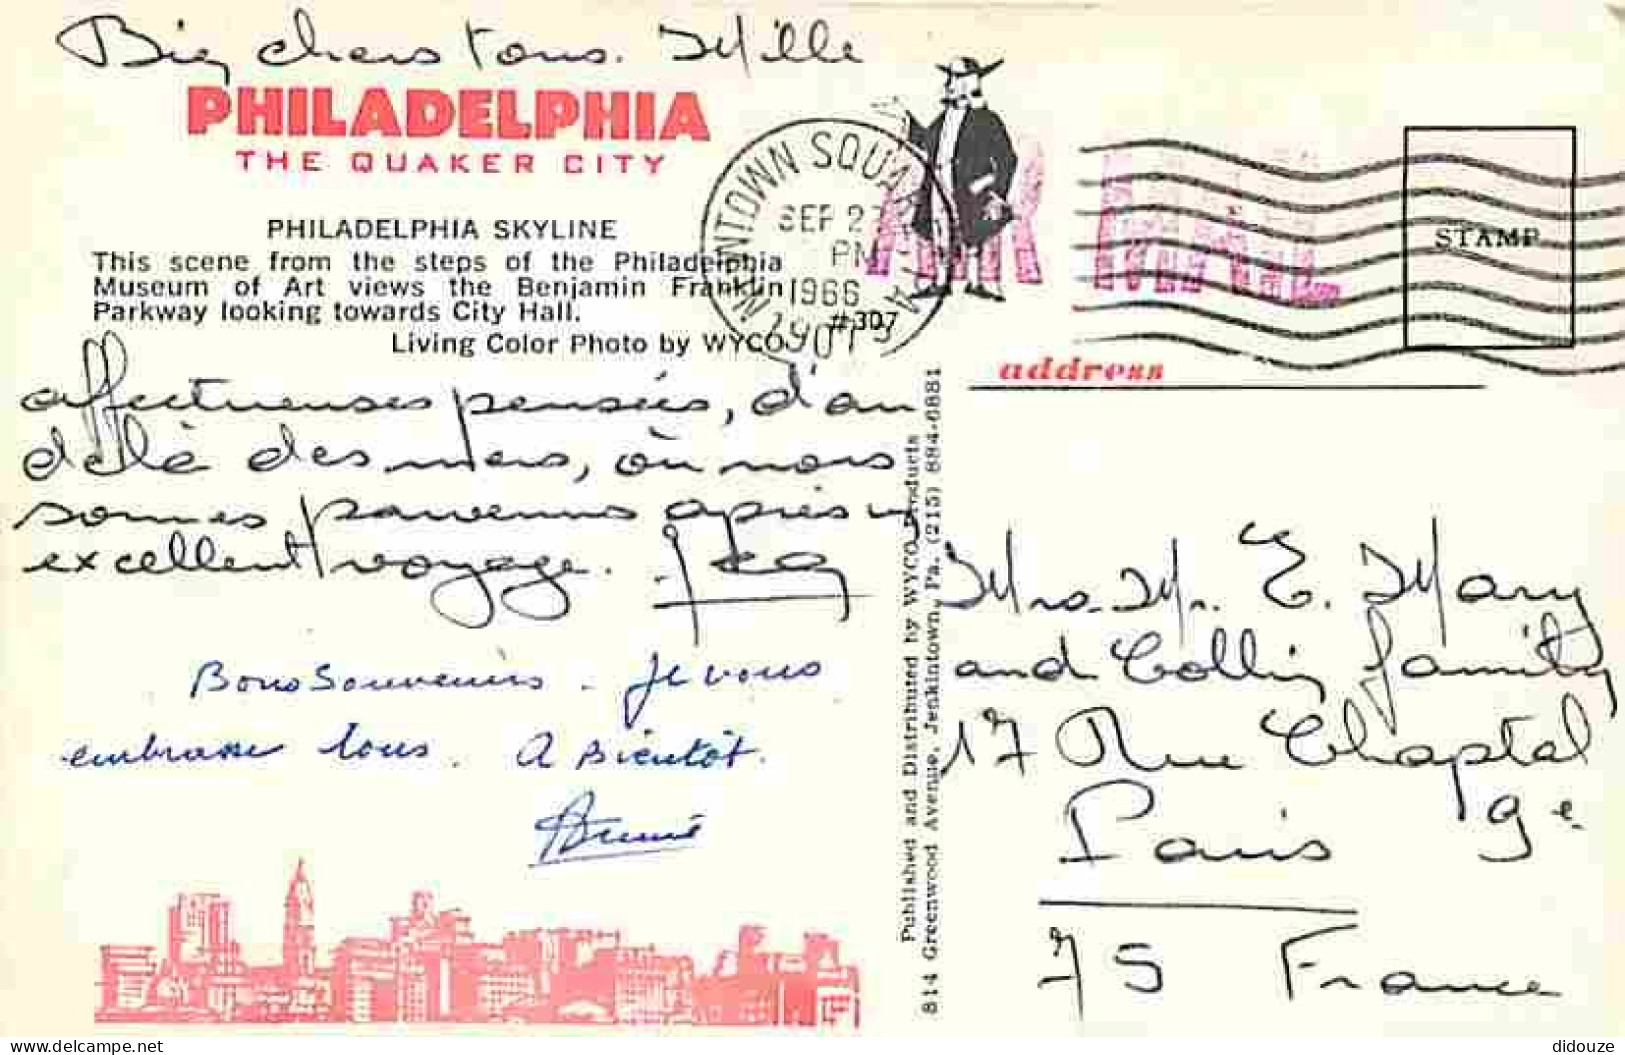 Bien chers tous. Mille
PHILADELPHIA
THE QUAKER CITY
PHILADELPHIA SKYLINE
This scene from the steps of the Philadelphia
Museum of Art views the Benjamin Franklin
Parkway looking towards City Hall.
#307
Living Color Photo by WYCO
affectueuses pensées, d'au
delà des mers, où nous
sommes parvenus après un
excellent voyage.
Bons Souvenirs - Je vous
embrasse tous. A Bientôt.
NEWTOWN SQUARE
SEP 27
PM
1966
19073
AIR MAIL
STAMP
address
Published and Distributed by WYCO Products
814 Greenwood Avenue, Jenkintown, Pa. (215) 884-6881
Mrs. Mr. E. Mary
and Collin family
17 Rue Chaptal
Paris 9e
75 France
delcampe.net
didouze